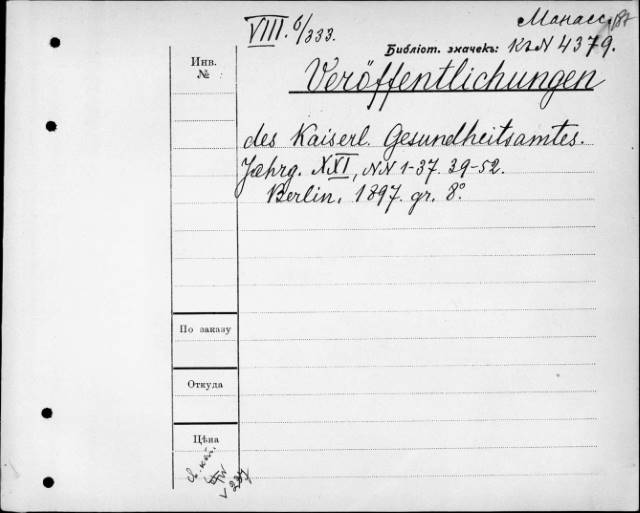 VIII. 6/333.
Манасс
Библіот. значекъ: КгN 4379.
Инв.
№
Veröffentlichungen
des Kaiserl. Gesundheitsamtes.
Jahrg. XXI, NN 1-37. 39-52.
Berlin. 1897. gr. 8°.
По заказу
Откуда
Цѣна